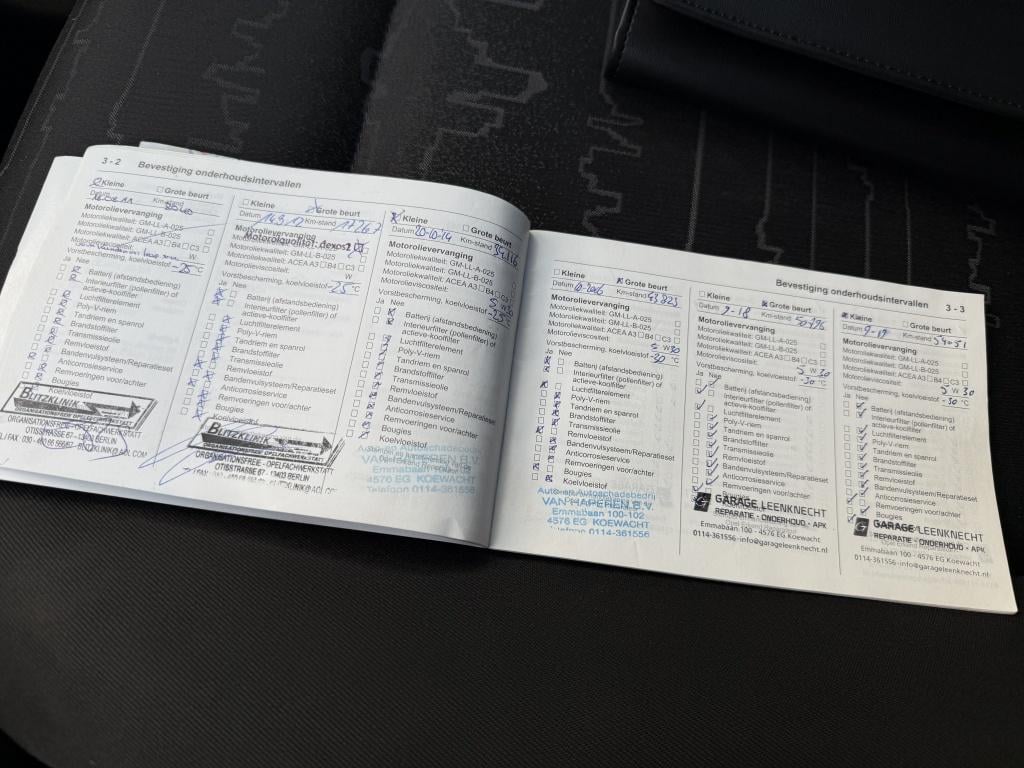 3 - 2 Bevestiging onderhoudsintervallen
Kleine Grote beurt
Datum Km-stand
Motorolievervanging
Motoroliekwaliteit: GM-LL-A-025
Motoroliekwaliteit: GM-LL-B-025
Motoroliekwaliteit: ACEA A3 B4 C3
W
Vorstbescherming, koelvloeistof -25 °C
Ja Nee
Batterij (afstandsbediening)
Interieurfilter (pollenfilter) of
actieve-koolfilter
Luchtfilterelement
Poly-V-riem
Tandriem en spanrol
Brandstoffilter
Transmissieolie
Remvloeistof
Bandenvulsysteem/Reparatieset
Anticorrosieservice
Remvoeringen voor/achter
Bougies
Koelvloeistof
BLITZKLINIK
ORGANISATIONSFREIE OPELFACHWERKSTATT
OTISSTRASSE 67 - 13403 BERLIN
Kleine Grote beurt
Datum Km-stand
Motorolievervanging
Motorolqualität: dexos2
Motoroliekwaliteit: GM-LL-B-025
Motoroliekwaliteit: ACEA A3 B4 C3
Motorolieviscositeit: W
Vorstbescherming, koelvloeistof -25 °C
Ja Nee
Batterij (afstandsbediening)
Interieurfilter (pollenfilter) of
actieve-koolfilter
Luchtfilterelement
Poly-V-riem
Tandriem en spanrol
Brandstoffilter
Transmissieolie
Remvloeistof
Bandenvulsysteem/Reparatieset
Anticorrosieservice
Remvoeringen voor/achter
Bougies
Koelvloeistof
BLITZKLINIK
ORGANISATIONSFREIE - OPELFACHWERKSTATT
OTISSTRASSE 67 - 13403 BERLIN
Kleine Grote beurt
Datum 20-10-14 Km-stand
Motorolievervanging
Motoroliekwaliteit: GM-LL-A-025
Motoroliekwaliteit: GM-LL-B-025
Motoroliekwaliteit: ACEA A3 B4 C3
Motorolieviscositeit:
Vorstbescherming, koelvloeistof -25 °C
Ja Nee
Batterij (afstandsbediening)
Interieurfilter (pollenfilter) of
actieve-koolfilter
Luchtfilterelement
Poly-V-riem
Tandriem en spanrol
Brandstoffilter
Transmissieolie
Remvloeistof
Bandenvulsysteem/Reparatieset
Anticorrosieservice
Remvoeringen voor/achter
Bougies
Koelvloeistof
VAN HAPEREN B.V.
Emmabaan 100-102
4576 EG KOEWACHT
Telefoon 0114-361556
Bevestiging onderhoudsintervallen 3 - 3
Kleine Grote beurt
Datum Km-stand 43823
Motorolievervanging
Motoroliekwaliteit: GM-LL-A-025
Motoroliekwaliteit: GM-LL-B-025
Motoroliekwaliteit: ACEA A3 B4 C3
Motorolieviscositeit: 5 W 30
Vorstbescherming, koelvloeistof -30 °C
Ja Nee
Batterij (afstandsbediening)
Interieurfilter (pollenfilter) of
actieve-koolfilter
Luchtfilterelement
Poly-V-riem
Tandriem en spanrol
Brandstoffilter
Transmissieolie
Remvloeistof
Bandenvulsysteem/Reparatieset
Anticorrosieservice
Remvoeringen voor/achter
Bougies
Auto en Autoschadebedrijf
VAN HAPEREN B.V.
Emmabaan 100-102
4576 EG KOEWACHT
Telefoon 0114-361556
Kleine Grote beurt
Datum 7-18 Km-stand
Motorolievervanging
Motoroliekwaliteit: GM-LL-A-025
Motoroliekwaliteit: GM-LL-B-025
Motoroliekwaliteit: ACEA A3 B4 C3
Motorolieviscositeit: 5 W 30
Vorstbescherming, koelvloeistof -30 °C
Ja Nee
Batterij (afstandsbediening)
Interieurfilter (pollenfilter) of
actieve-koolfilter
Luchtfilterelement
Poly-V-riem
Tandriem en spanrol
Brandstoffilter
Transmissieolie
Remvloeistof
Bandenvulsysteem/Reparatieset
Anticorrosieservice
Remvoeringen voor/achter
Bougies
GARAGE LEENKNECHT
REPARATIE - ONDERHOUD - APK
Emmabaan 100 - 4576 EG Koewacht
0114-361556 - info@garageleenknecht.nl
Kleine Grote beurt
Datum Km-stand 54051
Motorolievervanging
Motoroliekwaliteit: GM-LL-A-025
Motoroliekwaliteit: GM-LL-B-025
Motoroliekwaliteit: ACEA A3 B4 C3
Motorolieviscositeit: 5 W 30
Vorstbescherming, koelvloeistof -30 °C
Ja Nee
Batterij (afstandsbediening)
Interieurfilter (pollenfilter) of
actieve-koolfilter
Luchtfilterelement
Poly-V-riem
Tandriem en spanrol
Brandstoffilter
Transmissieolie
Remvloeistof
Bandenvulsysteem/Reparatieset
Anticorrosieservice
Remvoeringen voor/achter
Bougies
GARAGE LEENKNECHT
REPARATIE - ONDERHOUD - APK
Emmabaan 100 - 4576 EG Koewacht
0114-361556 - info@garageleenknecht.nl